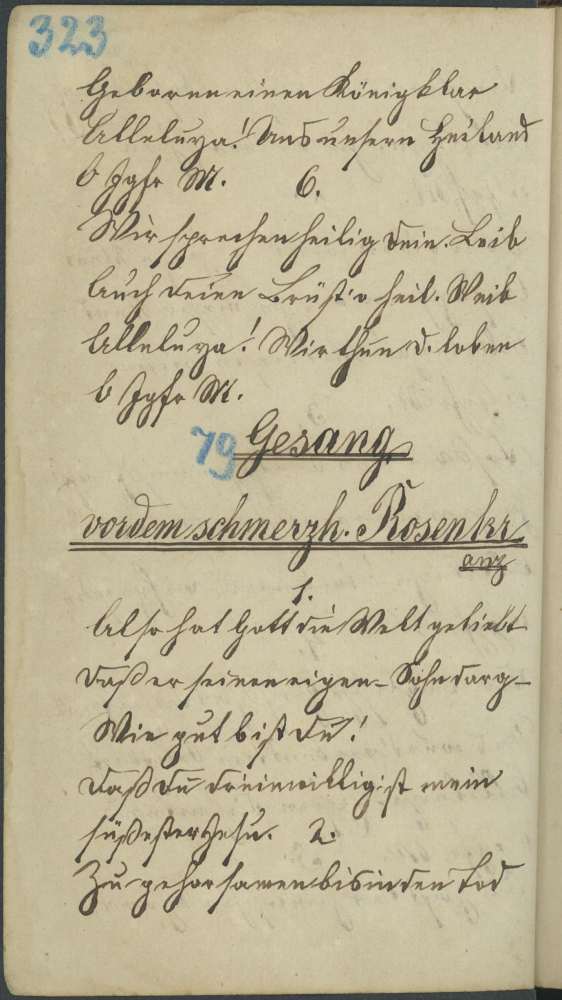 323
Geboren einen König klar
Alleluya! Uns unsern Heiland
O Jgfr M. 6.
Wir sprechen heilig dein Leib
Auch deine Brüst o heil. Weib
Alleluya! Wir thun d. loben
O Jgfr M.
79 Gesang
vor dem schmerzh. Rosenkr
anz
1.
Also hat Gott die Welt geliebt
Daß er seinen eigen- Sohn darg-
Wie gut bist du!
Daß du mein
süßester Jesu. 2.
Zu gehorsamen bis in den Tod